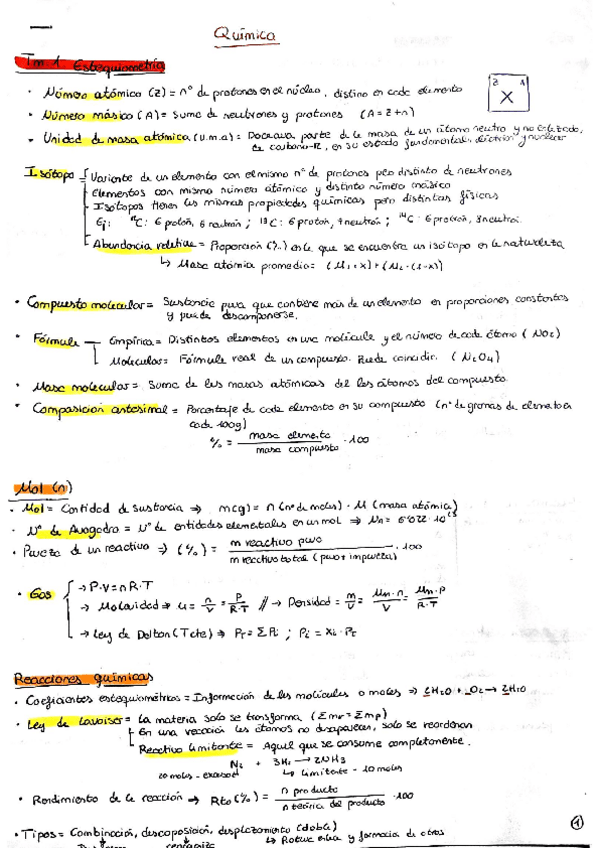 Química
Tm.1 Estequiometría
· Número atómico (Z) = nº de protones en el núcleo, distino en cada elemento
Z A
X
· Número másico (A) = Suma de neutrones y protones (A = Z + n)
· Unidad de masa atómica (u.m.a) = Doceava parte de la masa de un átomo neutro y no enlazado,
de carbono-12, en su estado fundamental eléctrico y nuclear
Isótopo = Variante de un elemento con el mismo nº de protones pero distinto de neutrones
Elementos con mismo número atómico y distinto número másico
Isótopos tienen las mismas propiedades químicas pero distintas físicas
Ej: C: 6 protón, 6 neutrón ; C: 6 protón, 7 neutrón ; ¹⁴C: 6 protrón, 8 neutrón.
Abundancia relativa = Proporción (%) en la que se encuentra un isótopo en la naturaleza
↳ Masa atómia promedio = (M₁ · x) + (M₂ · (1-x))
· Compuesto molecular = Sustancia pura que contiene más de un elemento en proporciones constantes
y puede descomponerse.
· Fórmula — Empírica = Distintos elementos en una molécula y el número de cada átomo (NO₂)
Molecular = Fórmula real de un compuesto. Puede coincidir. (N₂O₄)
· Masa molecular = Suma de las masas atómicas del los átomos del compuesto.
· Composición centesimal = Porcentaje de cada elemento en su compuesto (nº de gramos de elemento en
cada 100g)
% = masa elemento / masa compuesto · 100
Mol (n)
· Mol = Cantidad de sustancia ⇒ m(g) = n (nº de moles) · M (masa atómica)
· Nº de Avogadro = Nº de entidades elementales en un mol ⇒ Na = 6'022 · 10²³
· Pureza de un reactivo ⇒ (%) = m reactivo puro / m reactivo total (puro + impureza) · 100
· Gas → P·V = n R·T
→ Molaridad ⇒ M = n/V = P/R·T // → Densidad = m/V = Mm·n/V = Mm·P/R·T
→ Ley de Dalton (Tcte) ⇒ PT = ΣPi ; Pi = Xi · PT
Reacciones químicas
· Coeficientes estequiométricos = Información de las moléculas o moles ⇒ 2H₂O + O₂ → 2H₂O
· Ley de Lavoiser = La materia solo se transforma (Σmr = Σmp)
En una reacción los átomos no desaparecen, solo se reordenan
Reactivo limitante = Aquel que se consume completamente.
N₂ + 3H₂ → 2NH₃
20 moles - exceso ↳ limitante - 10 moles
· Rendimiento de la reacción ⇒ Rto (%) = n producto / n teórica del producto · 100
· Tipos = Combinación, descoposición, desplazamiento (doble)
↳ Rotura enlace y formación de otros
1